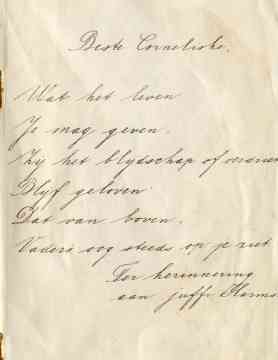 Beste Corneliske.
Wat het leven
Je mag geven.
Zij het blydschap of verdriet
Blyf geloven
Dat van boven.
Vaders oog steeds op je ziet
Ter herinnering
aan juffr Harms